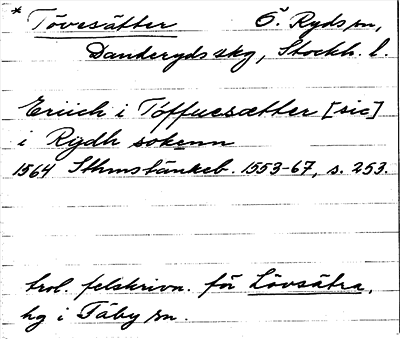 * Tövesätter Ö. Ryds sn,
Danderyds skg, Stockh. l.
Eriich i Töffuesætter [sic]
i Rydh sokenn
1564 Sthms tänkeb. 1553-67, s. 253.
trol. felskrivn. för Lövsätra,
hg i Täby sn.